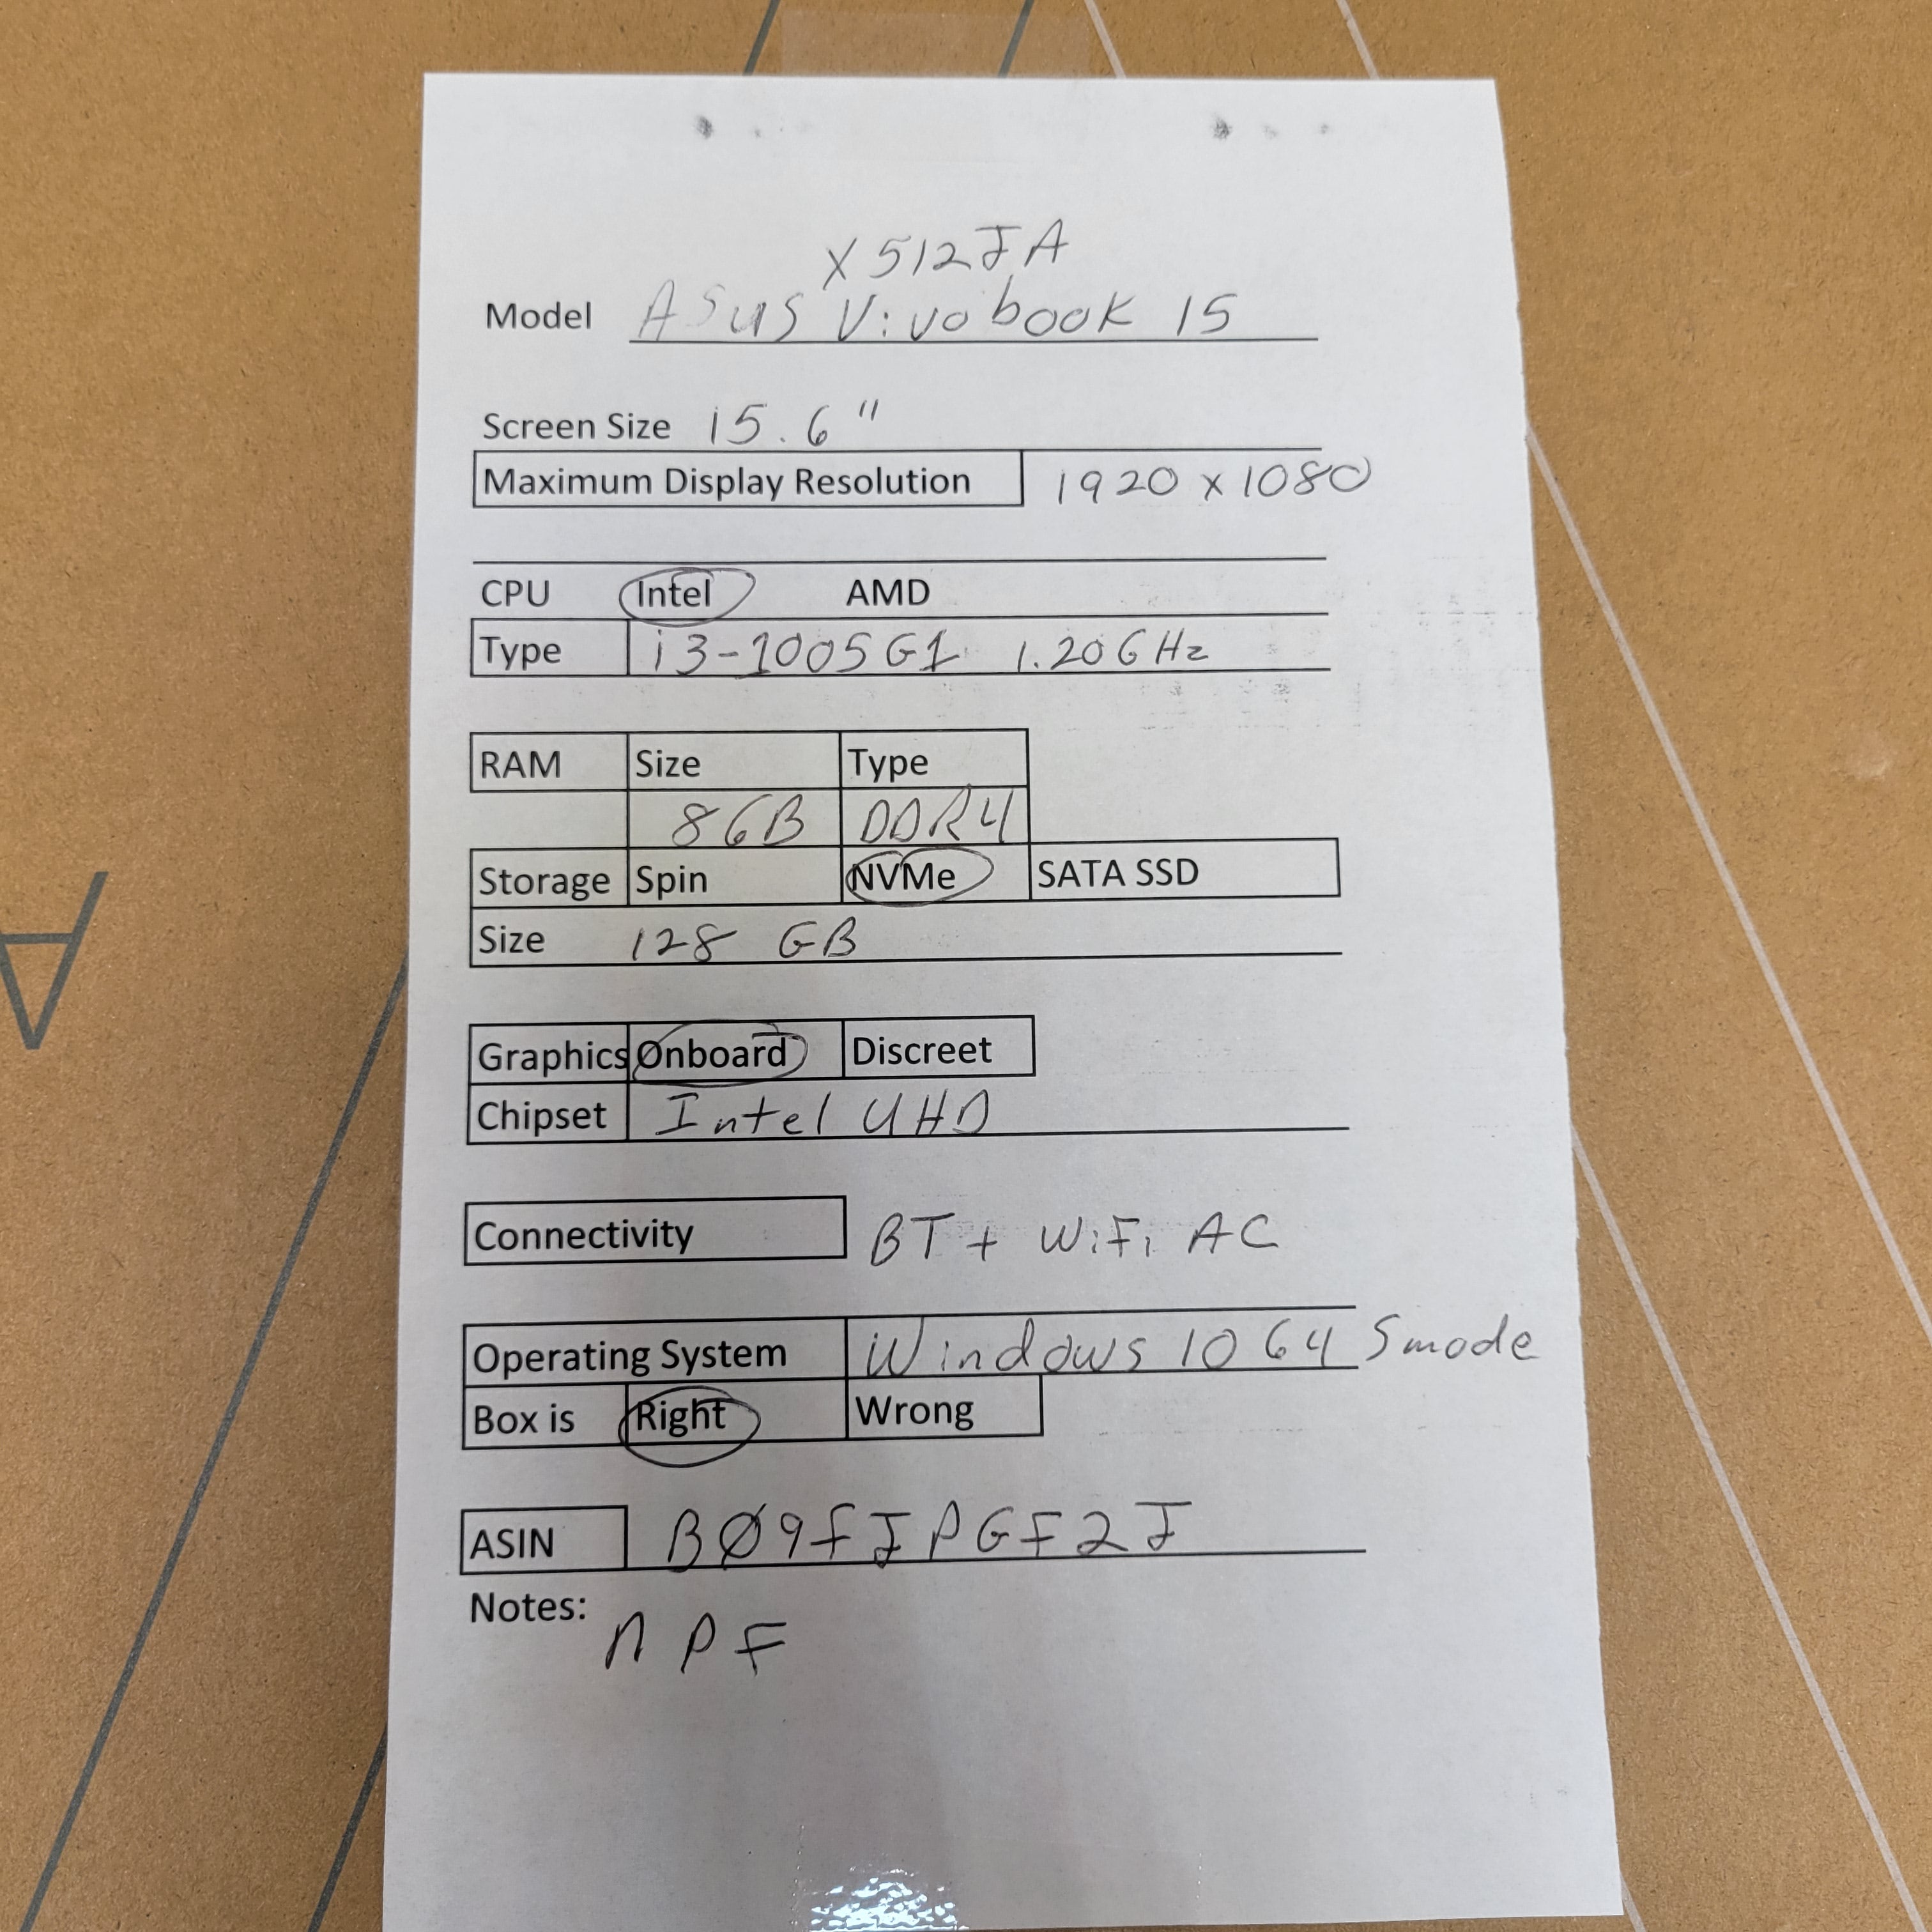 X512JA
Model Asus Vivobook 15
Screen Size 15.6"
Maximum Display Resolution 1920 x 1080
CPU Intel AMD
Type i3-1005G1 1.20GHz
RAM Size Type
8GB DDR4
Storage Spin NVMe SATA SSD
Size 128 GB
Graphics Onboard Discreet
Chipset Intel UHD
Connectivity BT + WiFi AC
Operating System Windows 10 64 S mode
Box is Right Wrong
ASIN BØ9FJPGF2J
Notes:
NPF
A